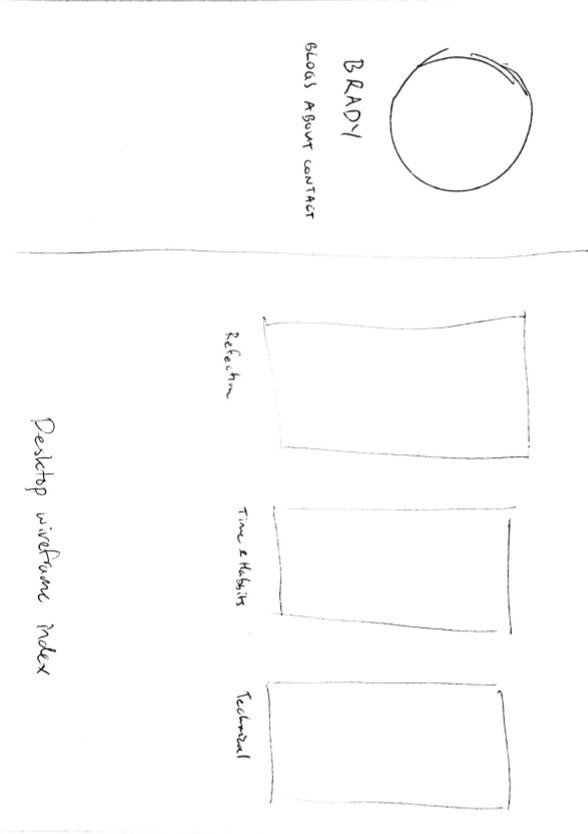 BRADY
BLOGS ABOUT CONTACT
Refection
Time & Habbits
Technical
Desktop wireframe index